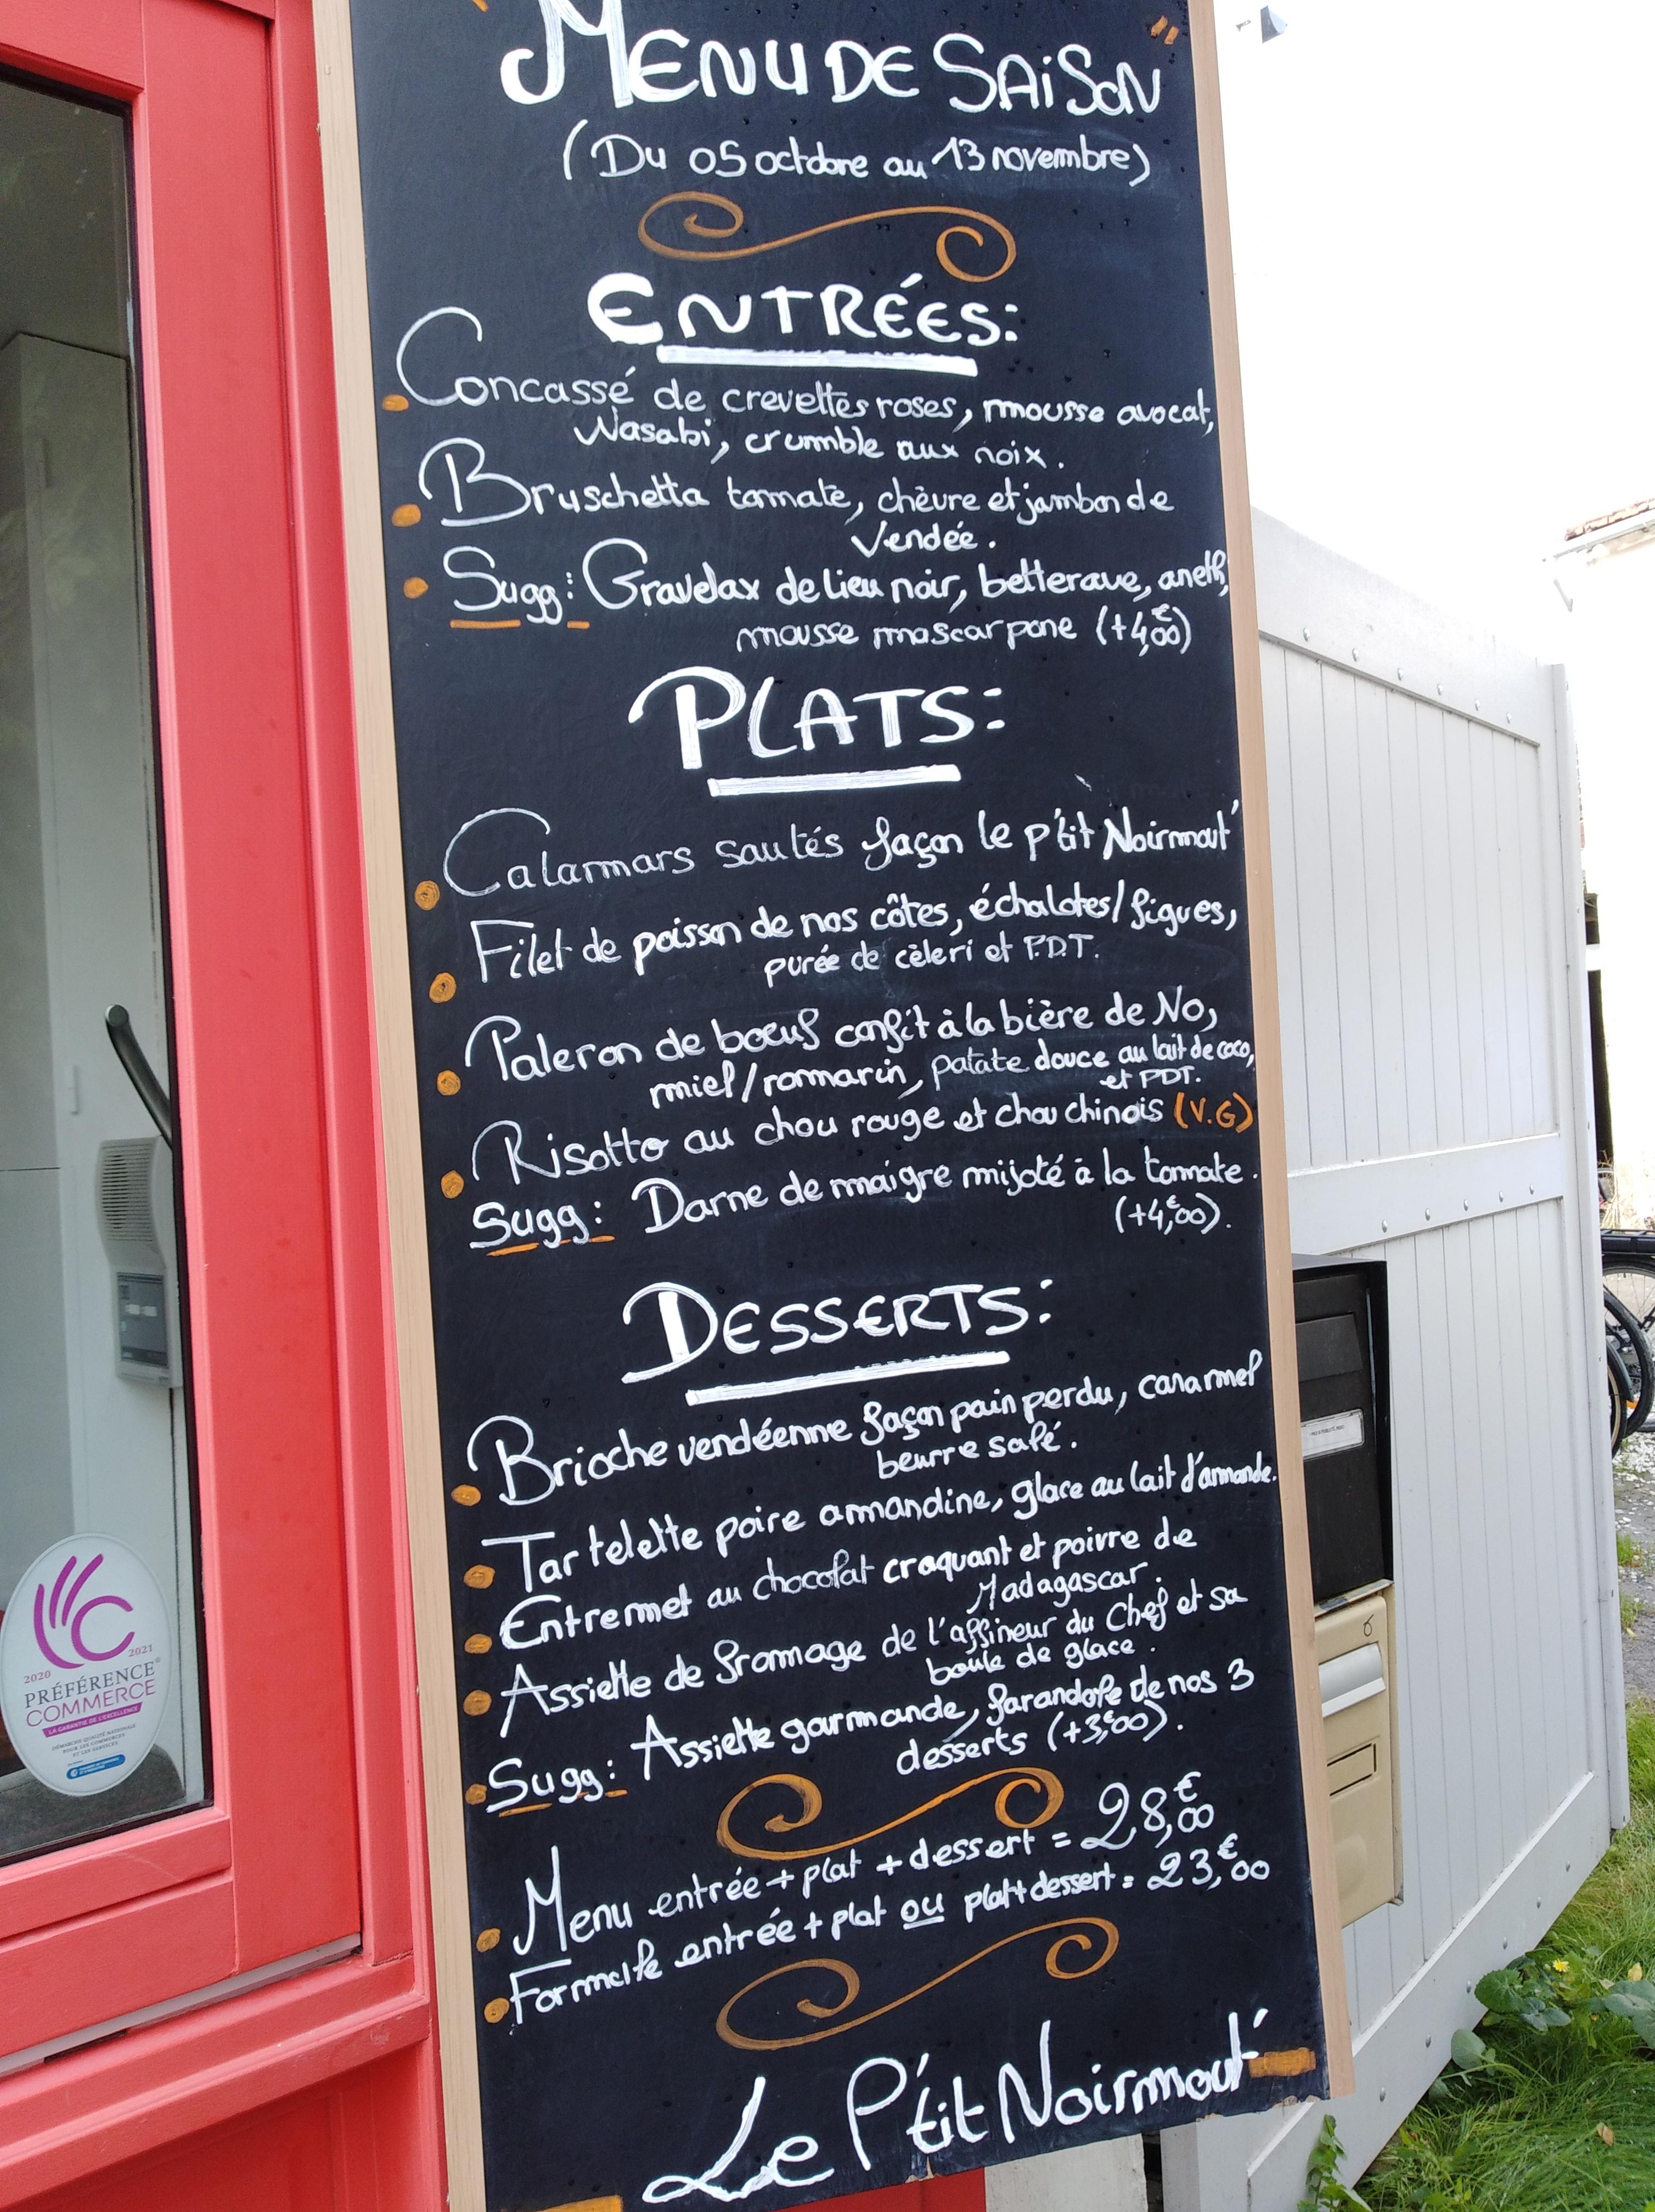 "MENU DE SAISON"
(Du 05 octobre au 13 novembre)
ENTRÉES:
Concassé de crevettes roses, mousse avocat,
Wasabi, crumble aux noix.
Bruschetta tomate, chèvre et jambon de
Vendée.
Sugg: Gravelax de lieu noir, betterave, aneth,
mousse mascarpone (+4,€00)
PLATS:
Calamars sautés façon le p'tit Noirmout'
Filet de poisson de nos côtes, échalotes/figues,
purée de cèleri et P.D.T.
Paleron de boeuf confit à la bière de NO,
miel/romarin, patate douce au lait de coco,
et PDT.
Risotto au chou rouge et chou chinois (V.G)
Sugg: Darne de maigre mijoté à la tomate.
(+4,€00).
DESSERTS:
Brioche vendéenne façon pain perdu, caramel
beurre salé.
Tartelette poire amandine, glace au lait d'amande.
Entremet au chocolat craquant et poivre de
Madagascar.
Assiette de fromage de l'affineur du Chef et sa
boule de glace.
Sugg: Assiette gourmande, farandole de nos 3
desserts (+3,€00).
Menu entrée + plat + dessert = 28,€00
Formule entrée + plat ou plat+dessert = 23,€00
Le P'tit Noirmout'
2020 2021
PRÉFÉRENCE
COMMERCE
LA GARANTIE DE L'EXCELLENCE
DÉMARCHE QUALITÉ NATIONALE
POUR LES COMMERCES
ET LES SERVICES